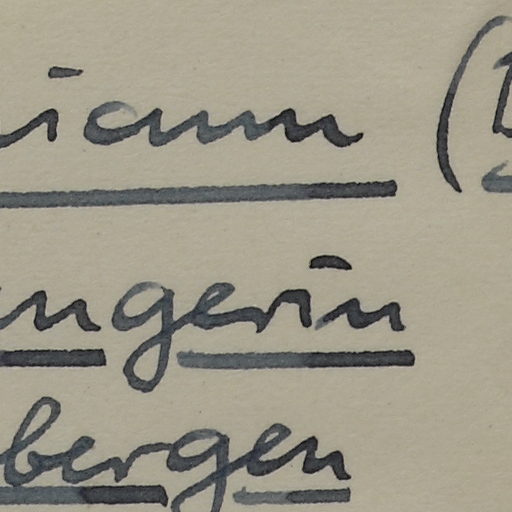 icum (
ngerin
bergen